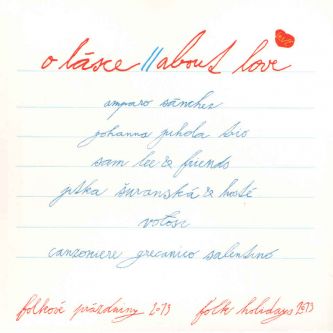 o lásce // about love
amparo sánchez
johanna juhola trio
sam lee & friends
jitka šuranská & hosté
vołosi
canzoniere grecanico salentino
folkové prázdniny 2013 folk holidays 2013